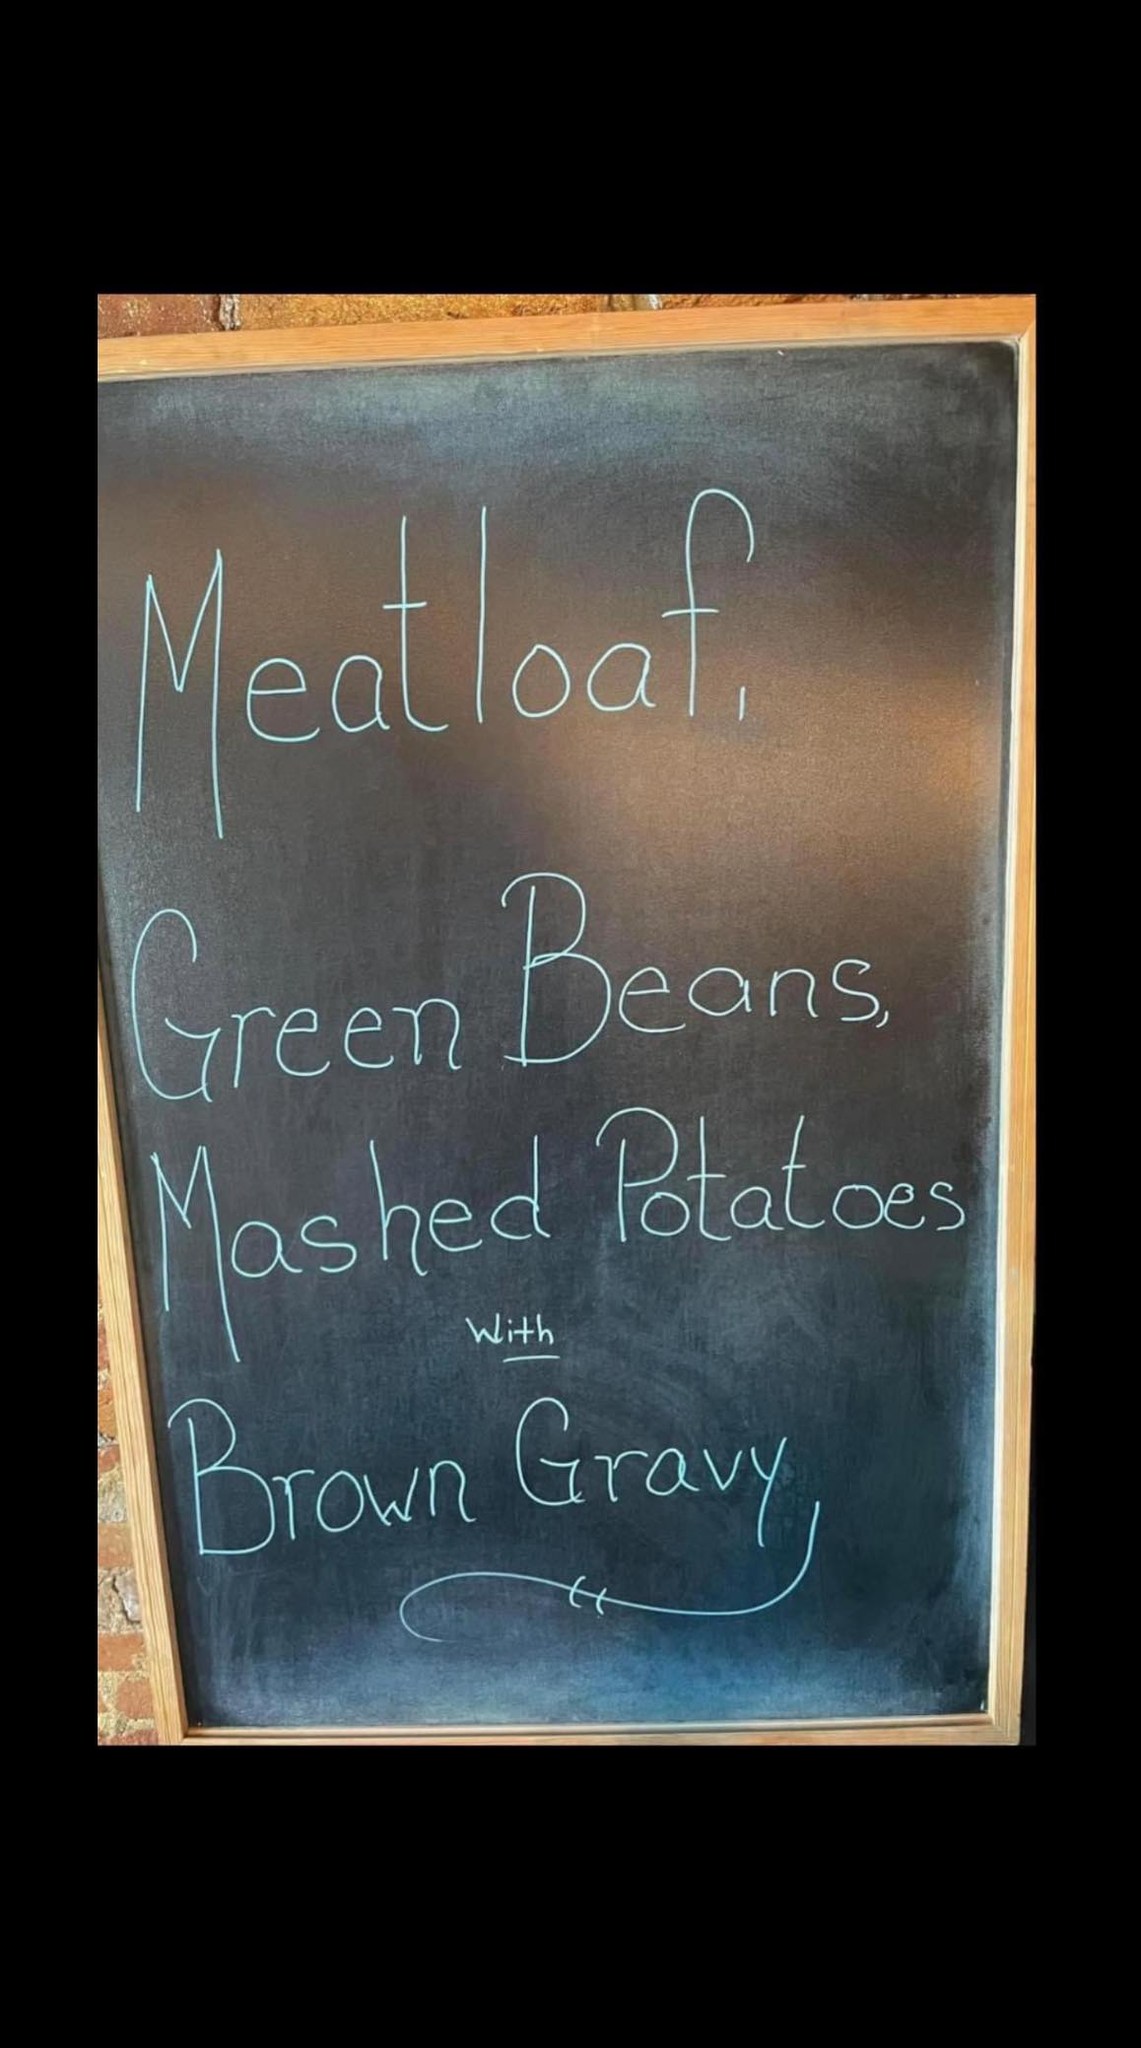 Meatloaf,
Green Beans,
Mashed Potatoes
With
Brown Gravy